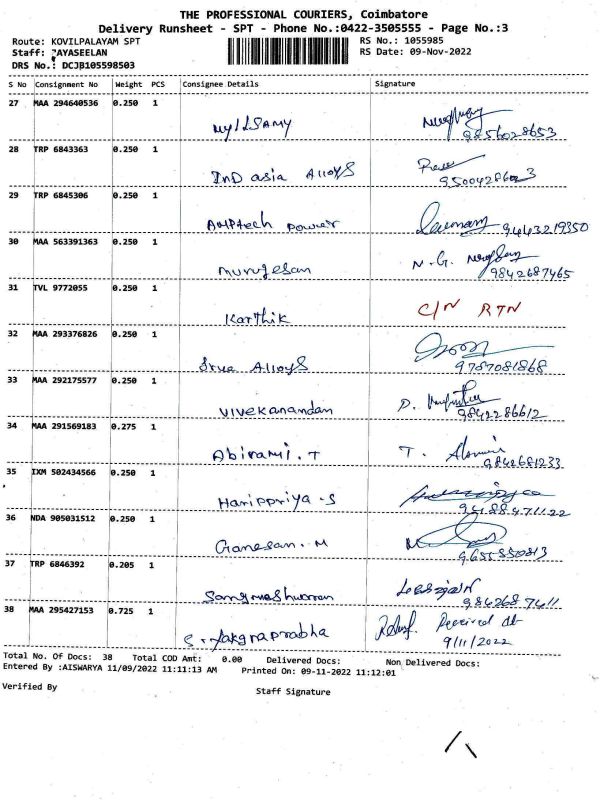 THE PROFESSIONAL COURIERS, Coimbatore
Delivery Runsheet - SPT - Phone No.:0422-3505555 - Page No.:3
Route: KOVILPALAYAM SPT RS No.: 1055985
Staff: AYASEELAN RS Date: 09-Nov-2022
DRS No.: DCJB105598503
S No Consignment No Weight PCS Consignee Details Signature
27 MAA 294640536 0.250 1
Myilsamy 9856028653
28 TRP 6843363 0.250 1
IND asia Alloys 9500428603
29 TRP 6845306 0.250 1
AMPtech power 9443219350
30 MAA 563391363 0.250 1
murugesan N.G. 9842687465
31 TVL 9772055 0.250 1
Karthik C/N RTN
32 MAA 293376826 0.250 1
Alloys 9787081868
33 MAA 292175577 0.250 1
vivekanandan D. 9842286612
34 MAA 291569183 0.275 1
Abirami.T T. 9842681233
35 IXM 502434566 0.250 1
Harippriya.S 9488471122
36 NDA 905031512 0.250 1
Ganesan.M 9655850813
37 TRP 6846392 0.205 1
9842687411
38 MAA 295427153 0.725 1
Received
9/11/2022
Total No. Of Docs: 38 Total COD Amt: 0.00 Delivered Docs: Non Delivered Docs:
Entered By :AISWARYA 11/09/2022 11:11:13 AM Printed On: 09-11-2022 11:12:01
Verified By Staff Signature